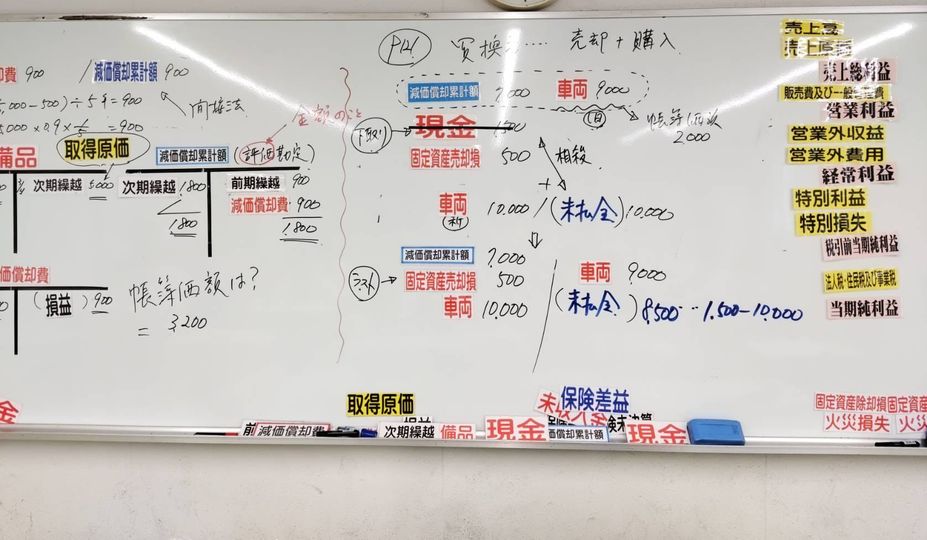 却費 900 / 減価償却累計額 900
,000-500)÷5年=900
間接法
5,000×0.9×1/5=900
金額のこと
備品
取得原価
減価償却累計額 (評価勘定)
次期繰越 5,000
次期繰越 1,800
前期繰越 900
減価償却費 900
1,800
1,800
価償却費
(損益) 900
帳簿価額は?
= 3,200
P121 買換え…… 売却+購入
減価償却累計額 7,000 車両 9,000
(旧)
帳簿価額
2,000
下取り
現金 1,500
固定資産売却損 500
相殺
車両 10,000 / (未払金) 10,000
(新)
減価償却累計額 7,000
車両 9,000
ラスト
固定資産売却損 500
車両 10,000
(未払金) 8,500…1,500-10,000
売上高
売上原価
売上総利益
販売費及び一般管理費
営業利益
営業外収益
営業外費用
経常利益
特別利益
特別損失
税引前当期純利益
法人税・住民税及び事業税
当期純利益
金
取得原価
保険差益
減価償却費
次期繰越
備品
現金
価償却累計額
現金
固定資産除却損
固定資産
火災損失
火災